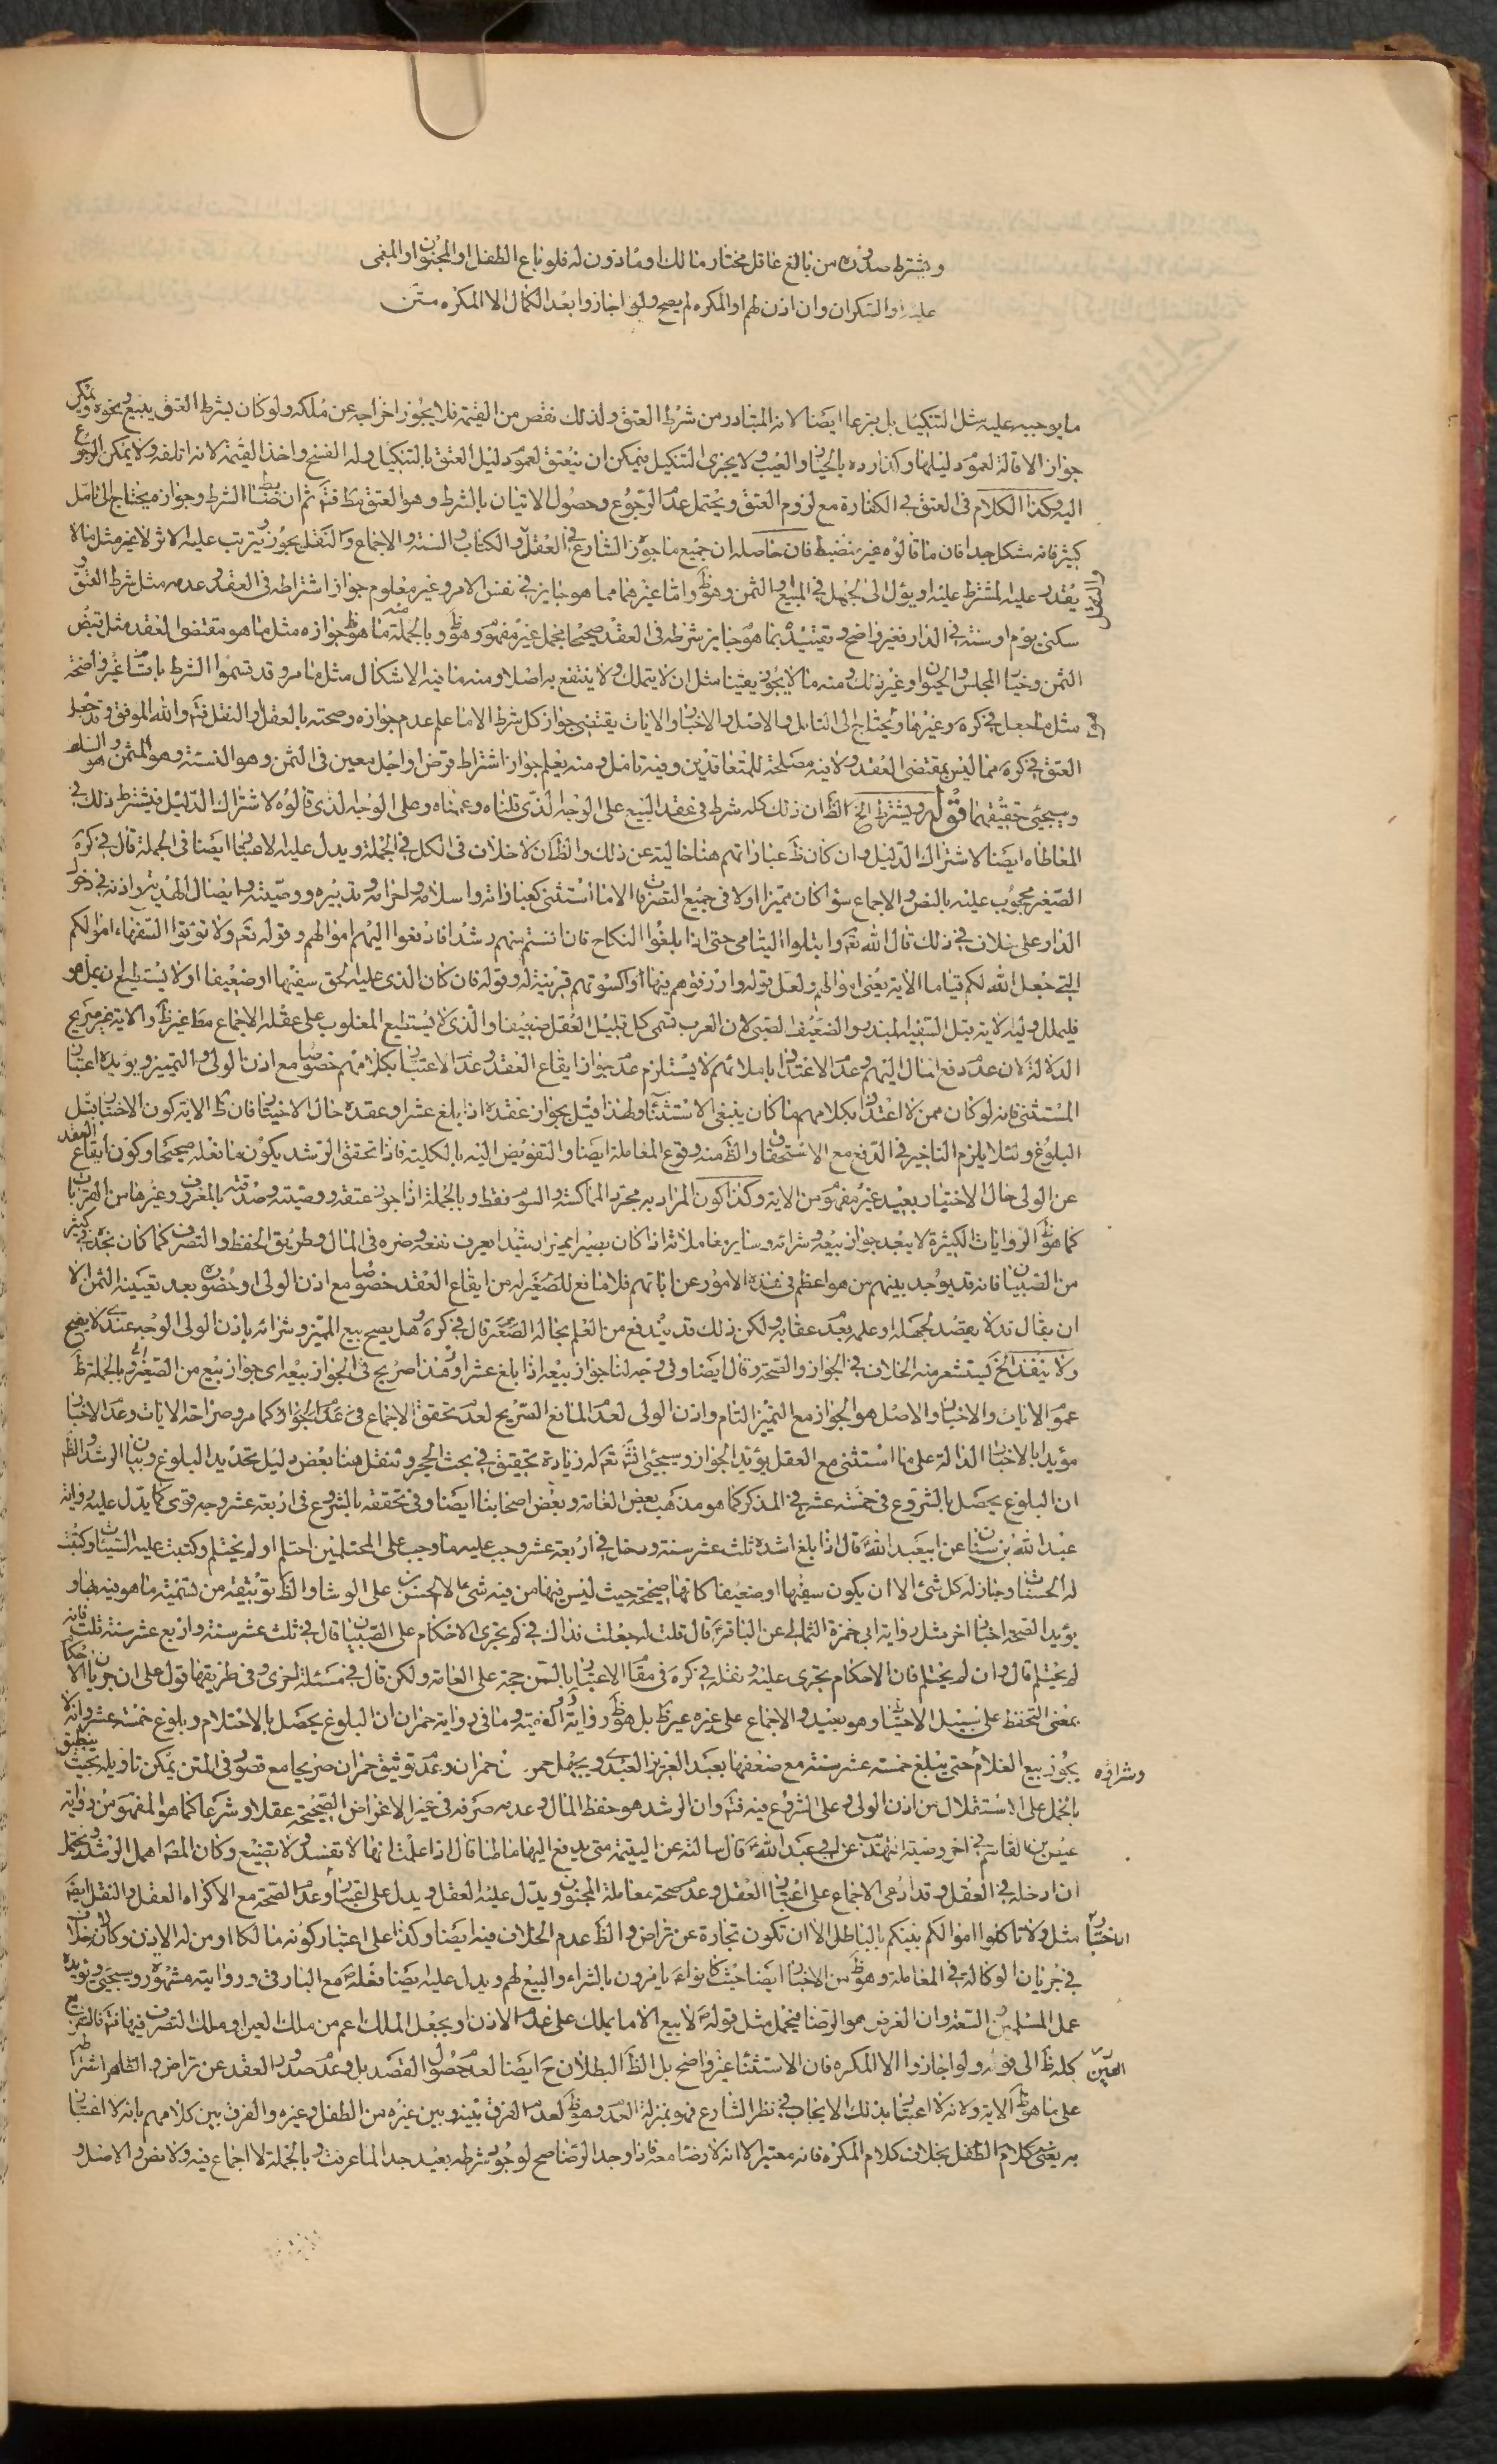 ويشترط صدوره من بالغ عاقل مختار مالك او ماذون له فلو باع الطفل او المجنون او المغمى
عليه او السكران وان اذن لهم او المكره لم يصح ولو اجازوا بعد الكمال الا المكره متن
ما يوجبه عليه مثل التنكيل بل بزعما ايضا لانه المتبادر من شرط العتق ولذلك نقص من القيمة فلا يجوز اخراجه عن ملكه ولو كان بشرط العتق ببيع ونحوه ويمكن
جواز الاقالة لعموم دليلها وكذا رده بالخيار والعيب ولا يجزى التنكيل فيمكن ان ينعتق لعموم دليل العتق بالتنكيل وله الفسخ واخذ القيمة لانه اتلفه ولا يمكن الرجوع
اليه وكذا الكلام فى العتق فى الكفارة مع لزوم العتق ويحتمل عدم الرجوع وحصول الاتيان بالشرط وهو العتق مط فتم ثم ان ضبط الشرط وجوازه يحتاج الى تامل
كثير فانه مشكل جدا فان ما قالوه غير منضبط فان حاصله ان جميع ما جوز الشارع فى العقل والكتاب والسنة والاجماع والنقل يجوز ويترتب عليه الاثر لا غير مثل ما لا
يقدر عليه المشترط عليه او يؤل الى الجهل فى المبيع والثمن وهو ظ واما غيرهما مما هو جايز فى نفس الامر وغير معلوم جواز اشتراطه فى العقد وعدمه مثل شرط العتق و
سكنى يوم او سنة فى الدار فغير واضح وتقييده بما هو جايز شرطه فى العقد صحيحا مجمل غير مفهوم وهو ظ وبالجملة منه ما هو ظ جوازه مثل ما هو مقتضى العقد مثل قبض
الثمن وخيار المجلس والحيوان وغير ذلك ومنه ما لا يجوز يقينا مثل ان لا يتملك ولا ينتفع به اصلا ومنه ما فيه الاشكال مثل ما مر وقد قسموا الشرط باقسام غير واضحة
مثل ما جعل فى كره وغيرها ويحتاج الى التامل والاصل والاخبار والايات يقتضى جواز كل شرط الا ما علم عدم جوازه وصحته بالعقل او النقل فتم والله الموفق وقد جعل
العتق فى كره مما ليس بمقتضى العقد ولا فيه مصلحة للمتعاقدين وفيه تامل ومنه يعلم جواز اشتراط قرض او اجل معين فى الثمن وهو النسية وهو المثمن وهو السلم
وسيجئ تحقيقهما قوله ويشترط الخ الظ ان ذلك كله شرط فى عقد البيع على الوجه الذى قلناه وعممناه وعلى الوجه الذى قالوه لاشتراك الدليل فيشترط ذلك فى
المعاطاة ايضا لاشتراك الدليل وان كان ظ عباراتهم هنا خالية عن ذلك والظ ان لا خلاف فى الكل فى الجملة ويدل عليه الاعتبار ايضا فى الجملة قال فى كره
الصغير محجوب عليه بالنص والاجماع سواء كان مميزا اولا فى جميع التصرفات الا ما استثنى كعباداته واسلامه واحرامه وتدبيره ووصيته وايصال الهدية واذنه فى دخول
الدار على خلاف فى ذلك قال الله تعم وابتلوا اليتامى حتى اذا بلغوا النكاح فان انستم منهم رشدا فادفعوا اليهم اموالهم وقوله تعم ولا تؤتوا السفهاء اموالكم
التى جعل الله لكم قياما الاية يعنى اموالهم ولعل قوله وارزقوهم فيها واكسوهم قرينة له وقوله فان كان الذى عليه الحق سفيها او ضعيفا او لا يستطيع ان يمل هو
فليملل وليه لاية قيل السفيه المبذر والضعيف الصبى لان العرب تسمى كل قليل العقل ضعيفا والذى لا يستطيع المغلوب على عقله الاجماع مط غير ظ والاية غير صريح
الدلالة لان عدم دفع المال اليهم وعدم الاعتداد باملائهم لا يستلزم عدم جواز ايقاع العقد وعدم الاعتبار بكلامهم خصوصا مع اذن الولى والتمييز ويؤيده اعتبار
المستثنى فانه لو كان ممن لا اعتداد بكلامهم ما كان ينبغى الاستثناء ولهذا قيل بجواز عقده اذا بلغ عشرا وعقده حال الاختبار فان ظ الاية كون الاختبار قبل
البلوغ ولئلا يلزم التاخير فى الدفع مع الاستحقاق والظ منه وقوع المعاملة ايضا والتفويض اليه بالكلية فاذا تحقق الرشد يكون ما فعله صحيحا وكون ايقاع العقد
عن الولى حال الاختيار بعيد غير مفهوم من الاية وكذا كون المراد به مجرد المماكسة والسوم فقط وبالجملة اذا جوز عتقه ووصيته وصدقته بالمعروف وغيرها من القربات
كما هو ظ الروايات الكثيرة لا يبعد جواز بيعه وشرائه وساير معاملاته اذا كان بصيرا مميزا رشيدا يعرف نفعه وضره فى المال وطريق الحفظ والتصرف كما كان نجد فى كثير
من الصبيان فانه قد يوجد بينهم من هو اعظم فى هذه الامور عن ابائهم فلا مانع للصغر له من ايقاع العقد خصوصا مع اذن الولى او حضوره بعد تعيينه الثمن الا
ان يقال قد لا يعتمد لجهله او علمه بعدم عقابه ولكن ذلك قد يندفع من العلم بحاله الصغر قال فى كره وهل يصح بيع المميز وشرائه باذن الولى الوجه عندى لا يصح
ولا ينفذ الخ ليستشعر منه الخلاف فى الجواز والصحة وقال ايضا وفى وجه لنا جواز بيعه اذا بلغ عشرا وهذا صريح فى الجواز بيعه اى جواز بيع من الصغير وبالجملة ظ
عموم الايات والاخبار والاصل هو الجواز مع التمييز التام واذن الولى لعدم المانع الصريح لعدم تحقق الاجماع فى عدم الجواز كما مر وصراحة الايات وعدم الاخبار
مؤيدا بالاخبار الدالة على ما استثنى مع العقل يؤيد الجواز وسيجئ انش تعم له زيادة تحقيق فى بحث الحجر وننقل هنا بعض دليل تحديد البلوغ وبيان الرشد والظ
ان البلوغ يحصل بالشروع فى خمسة عشر فى المذكر كما هو مذهب بعض العامة وبعض اصحابنا ايضا وفى تحققه بالشروع فى اربعة عشر وجه قوى كما يدل عليه رواية
عبد الله بن سنان عن ابيعبد الله ع قال اذا بلغ اشده ثلث عشر سنة ودخل فى اربعة عشر وجب عليه ما وجب على المحتلمين احتلم او لم يحتلم وكتبت عليه السيئات وكتبت
له الحسنات وجاز له كل شئ الا ان يكون سفيها او ضعيفا كانها صحيحة حيث ليس فيها من فيه شئ الا الحسن بن على الوشا والظ توثيقه من تسمية ما هو فيه بها و
يؤيد الصحة اخبار اخر مثل رواية ابى حمزة الثمالى عن الباقر ع قال قلت له جعلت فداك فى كم تجرى الاحكام على الصبيان قال فى ثلث عشر سنة واربع عشر سنة قلت فانه
لم يحتلم قال وان لم يحتلم فان الاحكام تجرى عليه ونقله فى كره فى مقام الاعتبار بالسن حجة على العامة ولكن قال فى مسئلة اخرى وفى طريقها قول على ان جريان الاحكام
بمعنى التحفظ على سبيل الاحتياط وهو بعيد والاجماع على غيره غير ظ بل هو ظ رواية الكفية وما فى رواية حمران ان البلوغ يحصل بالاحتلام وبلوغ خمسة عشر وانه لا
يجوز بيع الغلام حتى يبلغ خمسة عشر سنة مع ضعفها بعبد العزيز العبدى ويجهل حمزة بن حمران وعدم توثيق حمران صريحا مع قصور فى المتن يمكن تاويله بحيث ينطبق
وشراؤه
بالحمل على الاستقلال من اذن الولى وعلى الشروع فيه فتم وان الرشد هو حفظ المال وعدم صرفه فى غير الاغراض الصحيحة عقلا وشرعا كما هو المفهوم من رواية
عيص بن القاسم فى اخر وصية التهذيب عن ابى عبد الله ع قال سالته عن اليتيمة متى يدفع اليها مالها قال اذا علمت انها لا تفسد ولا تضيع وكان المص اهمل الرشد ويحتمل
ان ادخله فى العقل وقد ادعى الاجماع على اعتبار العقل وعدم صحة معاملة المجنون ويدل عليه العقل ويدل على اعتبار وعدم الصحة مع الاكراه العقل والنقل ايضا
مثل ولا تاكلوا اموالكم بينكم بالباطل الا ان تكون تجارة عن تراض والظ عدم الخلاف فيه ايضا وكذا على اعتبار كونه مالكا او من له الاذن وكان خلاف
فى جريان الوكالة فى المعاملة وهو ظ من الاخبار ايضا حيث كانوا ع يامرون بالشراء والبيع لهم ويدل عليه ايضا فعله ص مع البارقى وروايته مشهورة وسيجئ ويؤيده
عمل المسلمين السعة وان الغرض هو الرضا فيحمل مثل قوله ص لا بيع الا ما يملك على عدم الاذن او يجعل الملك اعم من ملك العين او ملك التصرف فيها فتم فالتفريع
كله ظ الى قوله ولو اجازوا الا المكره فان الاستثناء غير واضح بل الظ البطلان ح ايضا لعدم حصول القصد بل وعدم صدور العقد عن تراض والظاهر اشتراطه
على ما هو ظ الاية ولانه لا اعتبار بذلك الايجاب فى نظر الشارع فهو بمنزلة العدم وهو ظ لعدم الفرق بينه وبين غيره من الطفل وغيره والفرق بين كلامهم بانه لا اعتبار
به يعنى كلام الطفل بخلاف كلام المكره فانه معتبر الا انه لا رضا معه فاذا وجد الرضا صح لوجود شرطه بعيد جدا لما عرفت وبالجملة لا اجماع فيه ولا نص والاصل و